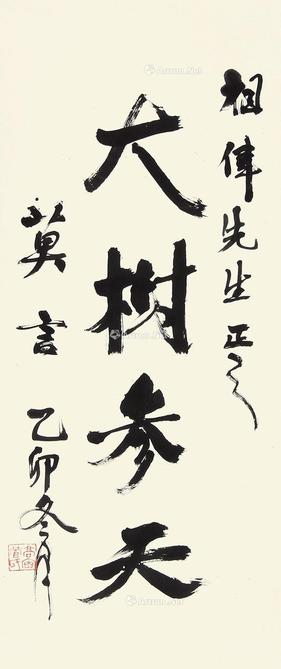 相伟先生正之
大树参天
莫言 乙卯冬月
Artron.Net
Artron.Net
Artron.Net